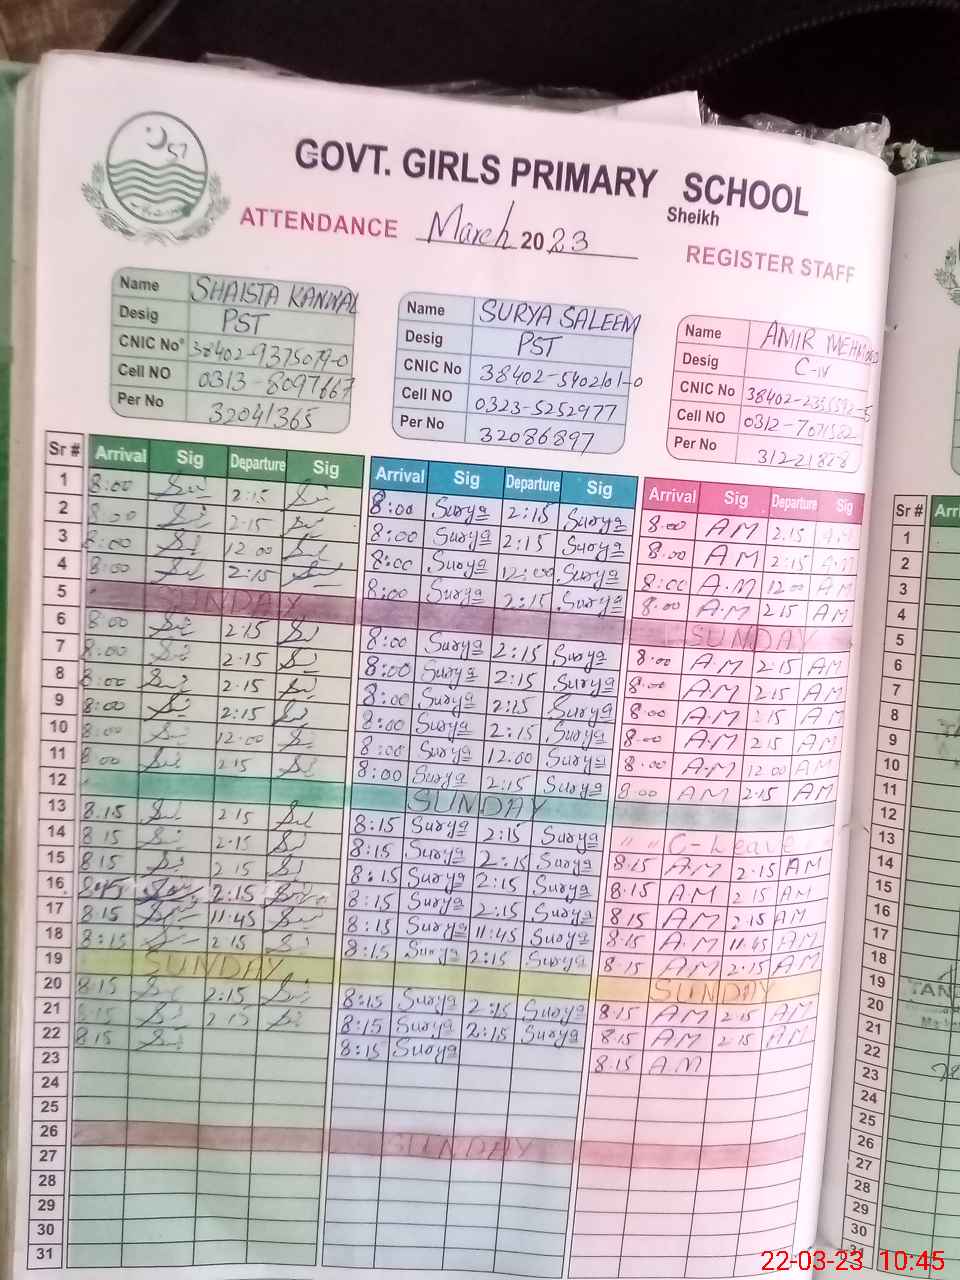 GOVT. GIRLS PRIMARY SCHOOL
Sheikh
ATTENDANCE March 2023 REGISTER STAFF
Name SHAISTA KANWAL
Desig PST
CNIC No 38402-9375079-0
Cell NO 0313-8097667
Per No 32041365
Name SURYA SALEEM
Desig PST
CNIC No 38402-5402101-0
Cell NO 0323-5252977
Per No 32086897
Name AMIR MEHMOOD
Desig C-iv
CNIC No
Cell NO
Per No
Sr # Arrival Sig Departure Sig Arrival Sig Departure Sig Arrival Sig Departure Sig
1 8:00 2:15 8:00 Surya 2:15 Surya 8.00 AM 2.15 A.M
2 8:00 2.15 8:00 Surya 2:15 Surya 8.00 AM 2:15 A.M
3 8:00 12.00 8:00 Surya 12:00 Surya 8:00 A.M 12.00 AM
4 8:00 2:15 8:00 Surya 2:15 Surya 8.00 A.M 2.15 AM
5 SUNDAY SUNDAY
6 8:00 2.15 8:00 Surya 2:15 Surya 8.00 A.M 2.15 AM
7 8:00 2.15 8:00 Surya 2:15 Surya 8.00 A.M 2.15 AM
8 8:00 2.15 8:00 Surya 2:15 Surya 8.00 A.M 2.15 AM
9 8:00 2:15 8:00 Surya 2:15 Surya 8.00 A.M 2.15 AM
10 8:00 12.00 8:00 Surya 12.00 Surya 8.00 A.M 12.00 AM
11 8:00 2.15 8:00 Surya 2:15 Surya 8.00 AM 2.15 AM
12 SUNDAY
13 8.15 2.15 8:15 Surya 2:15 Surya " " C-Leave
14 8.15 2.15 8:15 Surya 2:15 Surya 8.15 AM 2.15 AM
15 8.15 2.15 8:15 Surya 2:15 Surya 8.15 AM 2.15 AM
16 2:15 8:15 Surya 2:15 Surya 8.15 AM 2.15 AM
17 8.15 11:45 8:15 Surya 11:45 Surya 8.15 A.M 11.45 AM
18 8:15 2.15 8:15 Surya 2:15 Surya 8.15 AM 2.15 AM
19 SUNDAY SUNDAY
20 8.15 2:15 8:15 Surya 2:15 Surya 8.15 AM 2.15 AM
21 8.15 2.15 8:15 Surya 2:15 Surya 8.15 AM 2.15 AM
22 8.15 8:15 Surya 8.15 A.M
23
24
25
26 SUNDAY
27
28
29
30
31
Sr #
1
2
3
4
5
6
7
8
9
10
11
12
13
14
15
16
17
18
19
20
21
22
23
24
25
26
27
28
29
30
31
22-03-23 10:45